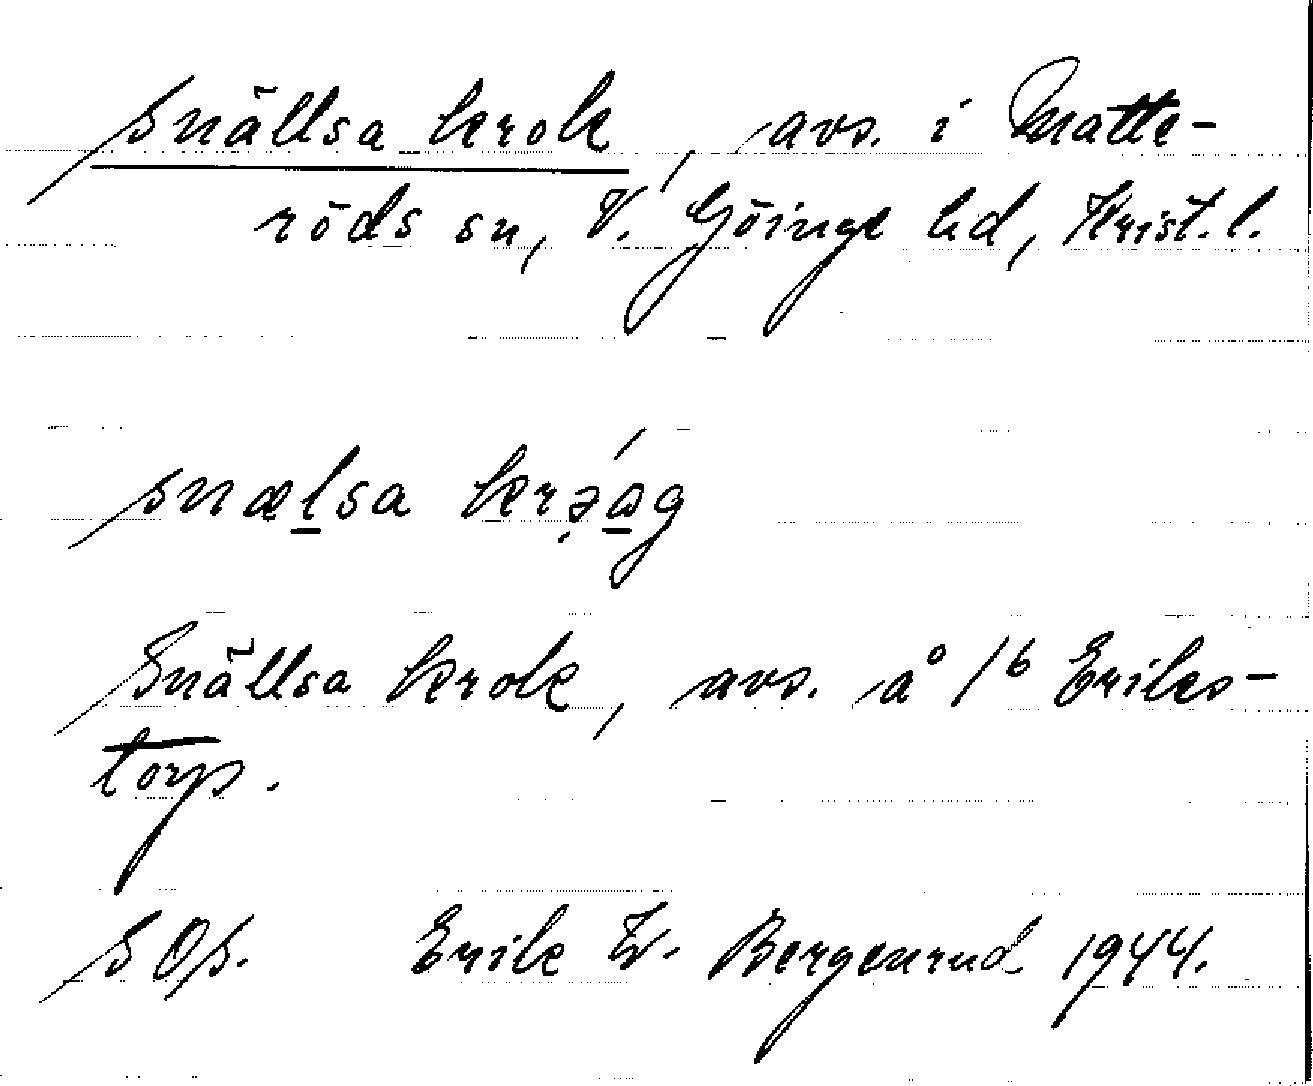 Snällsa krok, avs. i Matte-
röds sn, V. Göinge hd, Krist. l.
snælsa krə̣ág
Snällsa krok, avs. å 1⁶ Eriks-
torp.
SOs. Erik W. Bergenrud 1944.